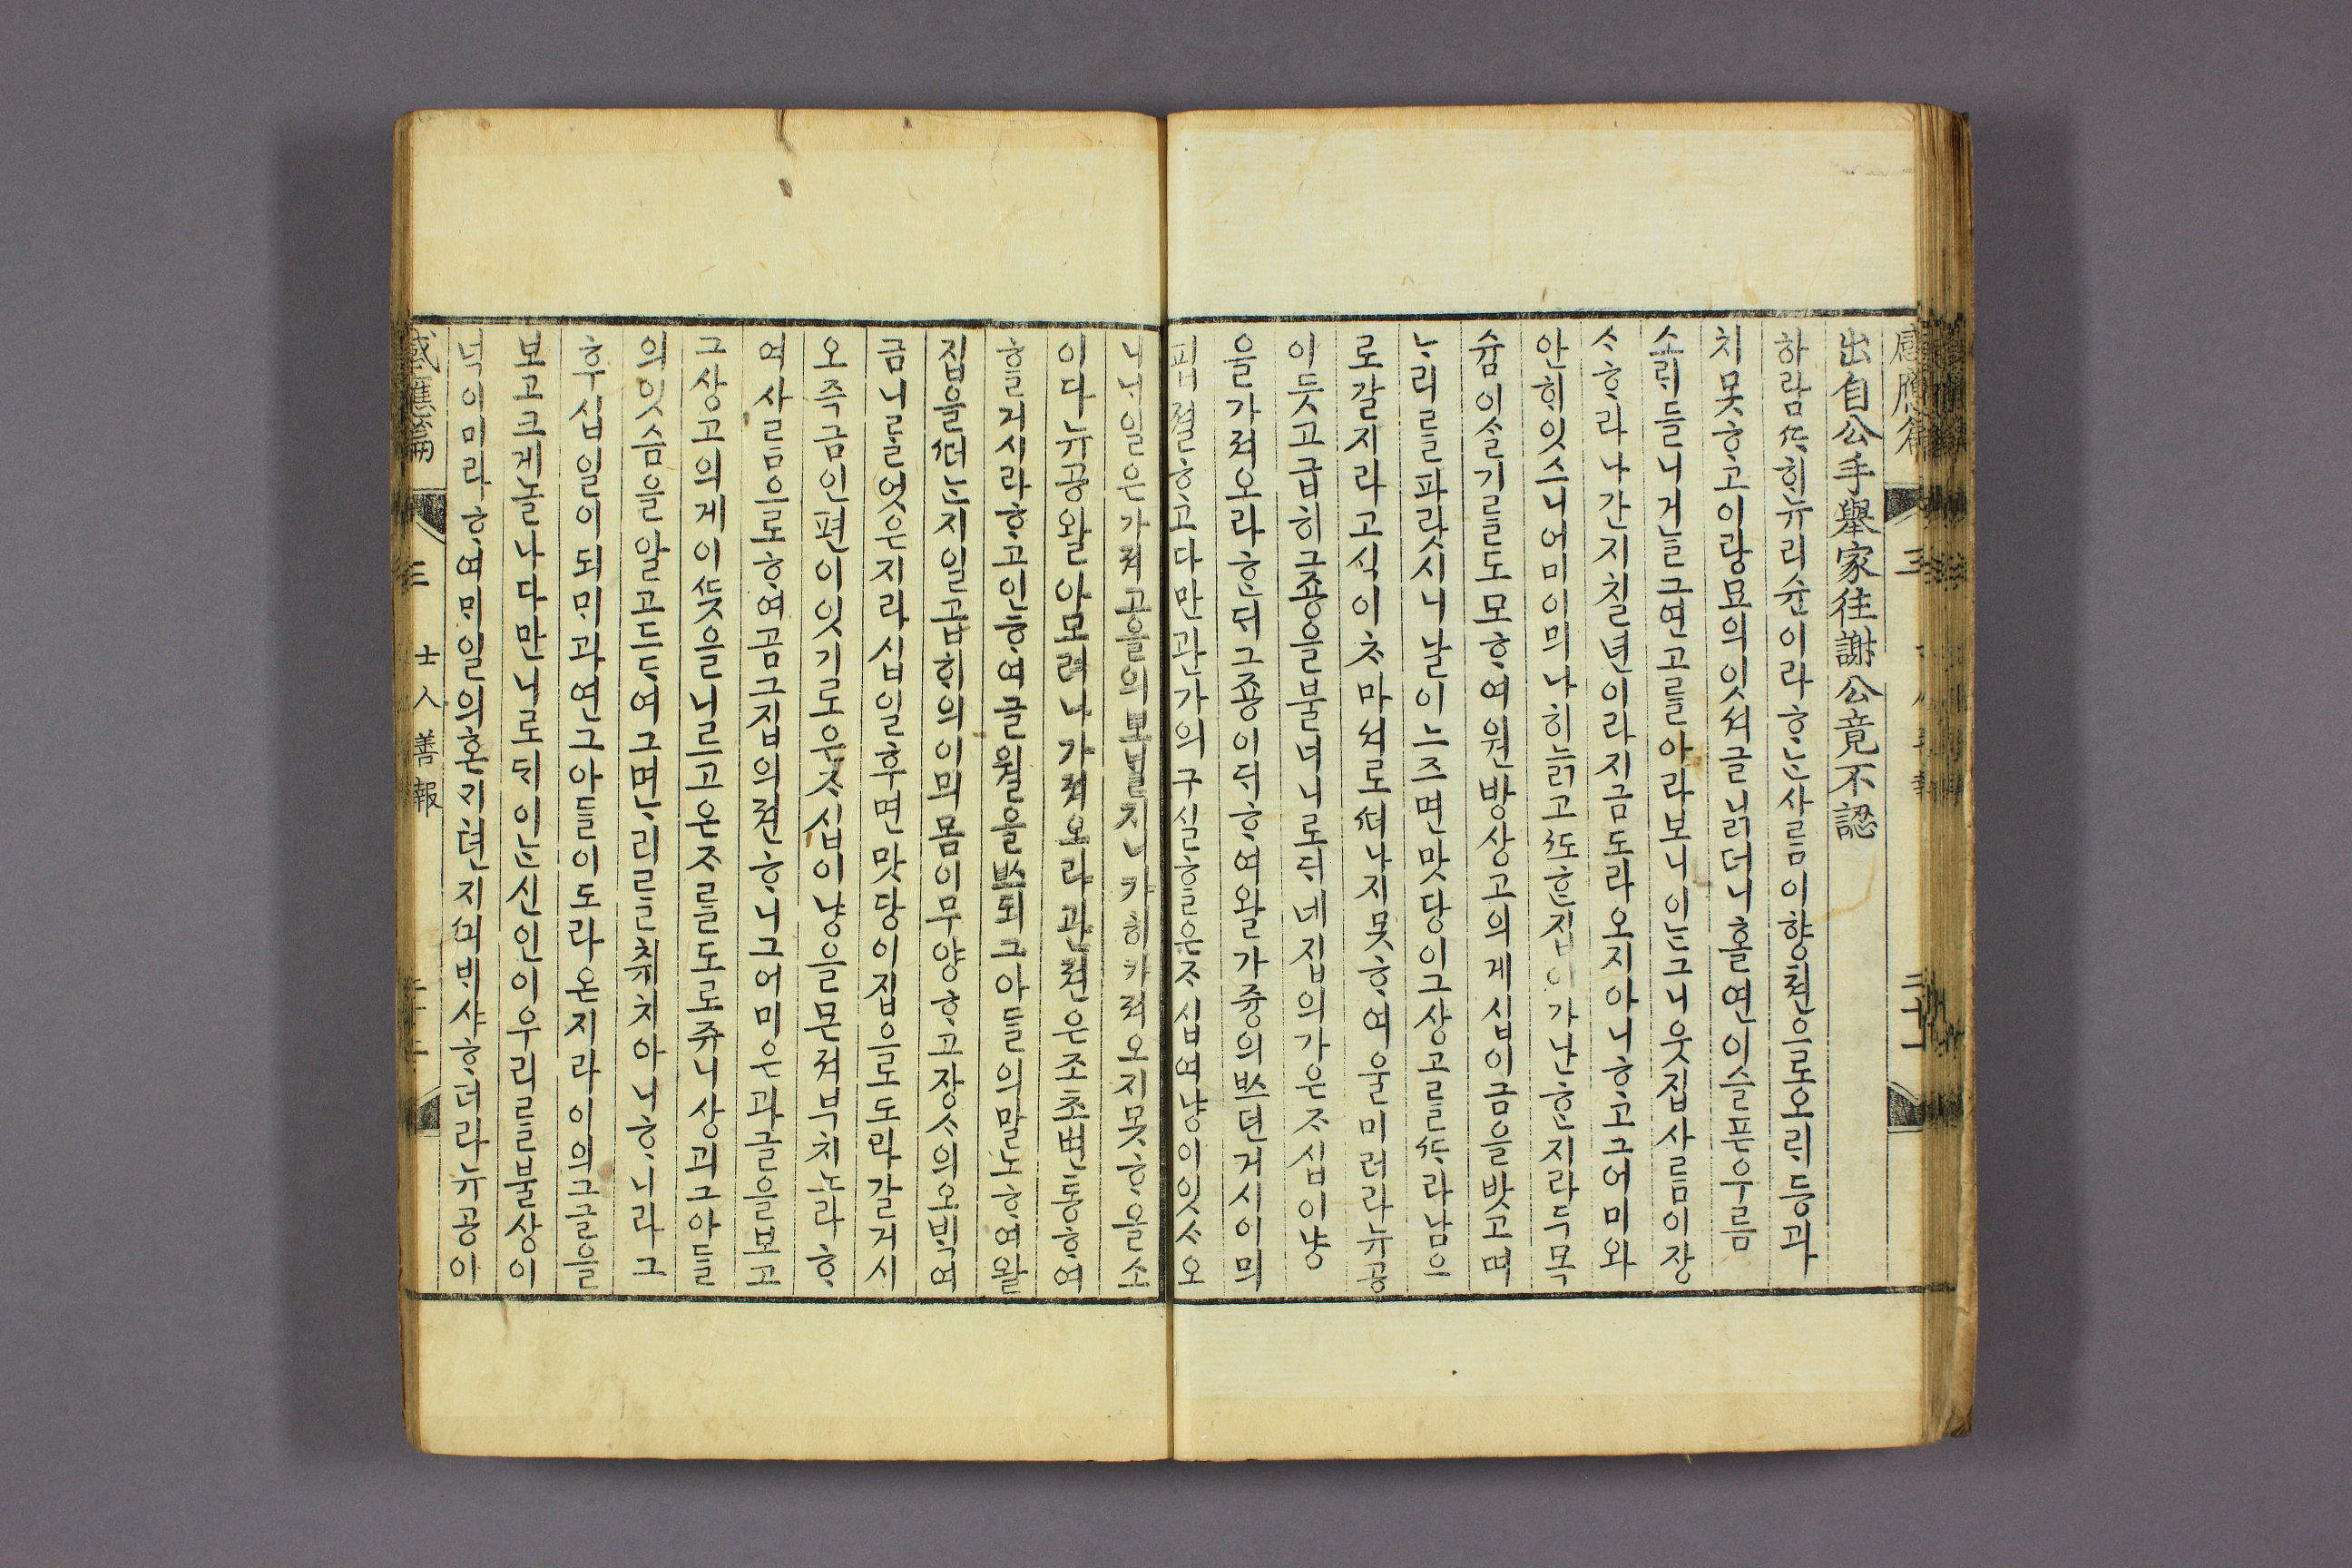 出自公手舉家往謝公竟不認
하람ᄯᅡ희뉴리슌이라ᄒᆞᄂᆞᆫ사ᄅᆞᆷ이향쳔으로오ᄅᆡ등과
치못ᄒᆞ고이랑묘의잇셔글닑더니홀연이슬픈우름
소ᄅᆡ들니거ᄂᆞᆯ그연고ᄅᆞᆯ아라보니이ᄂᆞᆫ그니웃집사ᄅᆞᆷ이쟝
ᄉᆞᄒᆞ라나간지칠년이라지금도라오지아니ᄒᆞ고그어미와
안ᄒᆡ잇스니어미이믜나히늙고ᄯᅩᄒᆞᆫ집이가난ᄒᆞᆫ지라득목
슘이살기ᄅᆞᆯ도모ᄒᆞ여원방샹고의게십이금을밧고며
ᄂᆞ리ᄅᆞᆯ파랏시니날이ᄂᆞ즈면맛당이그샹고ᄅᆞᆯᄯᅡ라남으
로갈지라고식이ᄎᆞ마서로ᄯᅥ나지못ᄒᆞ여울미러라뉴공
이듯고급히그죵을불너니로ᄃᆡ네집의가은ᄌᆞ십이냥
을가져오라ᄒᆞᆫᄃᆡ그죵이ᄃᆡᄒᆞ여왈가즁의ᄡᅳᆯ거시이믜
핍졀ᄒᆞ고다만관가의구실ᄒᆞᆯ은ᄌᆞ십여냥이잇ᄉᆞ오
니ᄂᆡ일은가져고을의보ᄂᆡᆯ지니가히가져오지못ᄒᆞ올소
이다뉴공왈아모려나가져오라관젼은조초변통ᄒᆞ여
ᄒᆞᆯ거시라ᄒᆞ고인ᄒᆞ여글월을ᄡᅳ되그아들의말노ᄒᆞ여왈
집을ᄯᅥ난지일곱ᄒᆡ의이믜몸이무양ᄒᆞ고쟝ᄉᆞ의오ᄇᆡᆨ여
금니ᄅᆞᆯ엇은지라십일후면맛당이집으로도라갈거시
오즉금인편이잇기로은ᄌᆞ십이냥을몬져부치노라ᄒᆞ
여사ᄅᆞᆷ으로ᄒᆞ여곰그집의젼ᄒᆞ니그어미은과글을보고
그샹고의게이ᄯᅳᆺ을니르고은ᄌᆞᄅᆞᆯ도로쥬니샹괴그아들
의잇슴을알고드듸여그며ᄂᆞ리ᄅᆞᆯ취치아니ᄒᆞ니라그
후십일이되ᄆᆡ과연그아들이도라온지라이의그글을
보고크게놀나다만니로ᄃᆡ이ᄂᆞᆫ신인이우리ᄅᆞᆯ불샹이
넉이미라ᄒᆞ여ᄆᆡ일의혼지텬지ᄭᅴᄇᆡ샤ᄒᆞ더라뉴공이
感應篇 三 士人善報